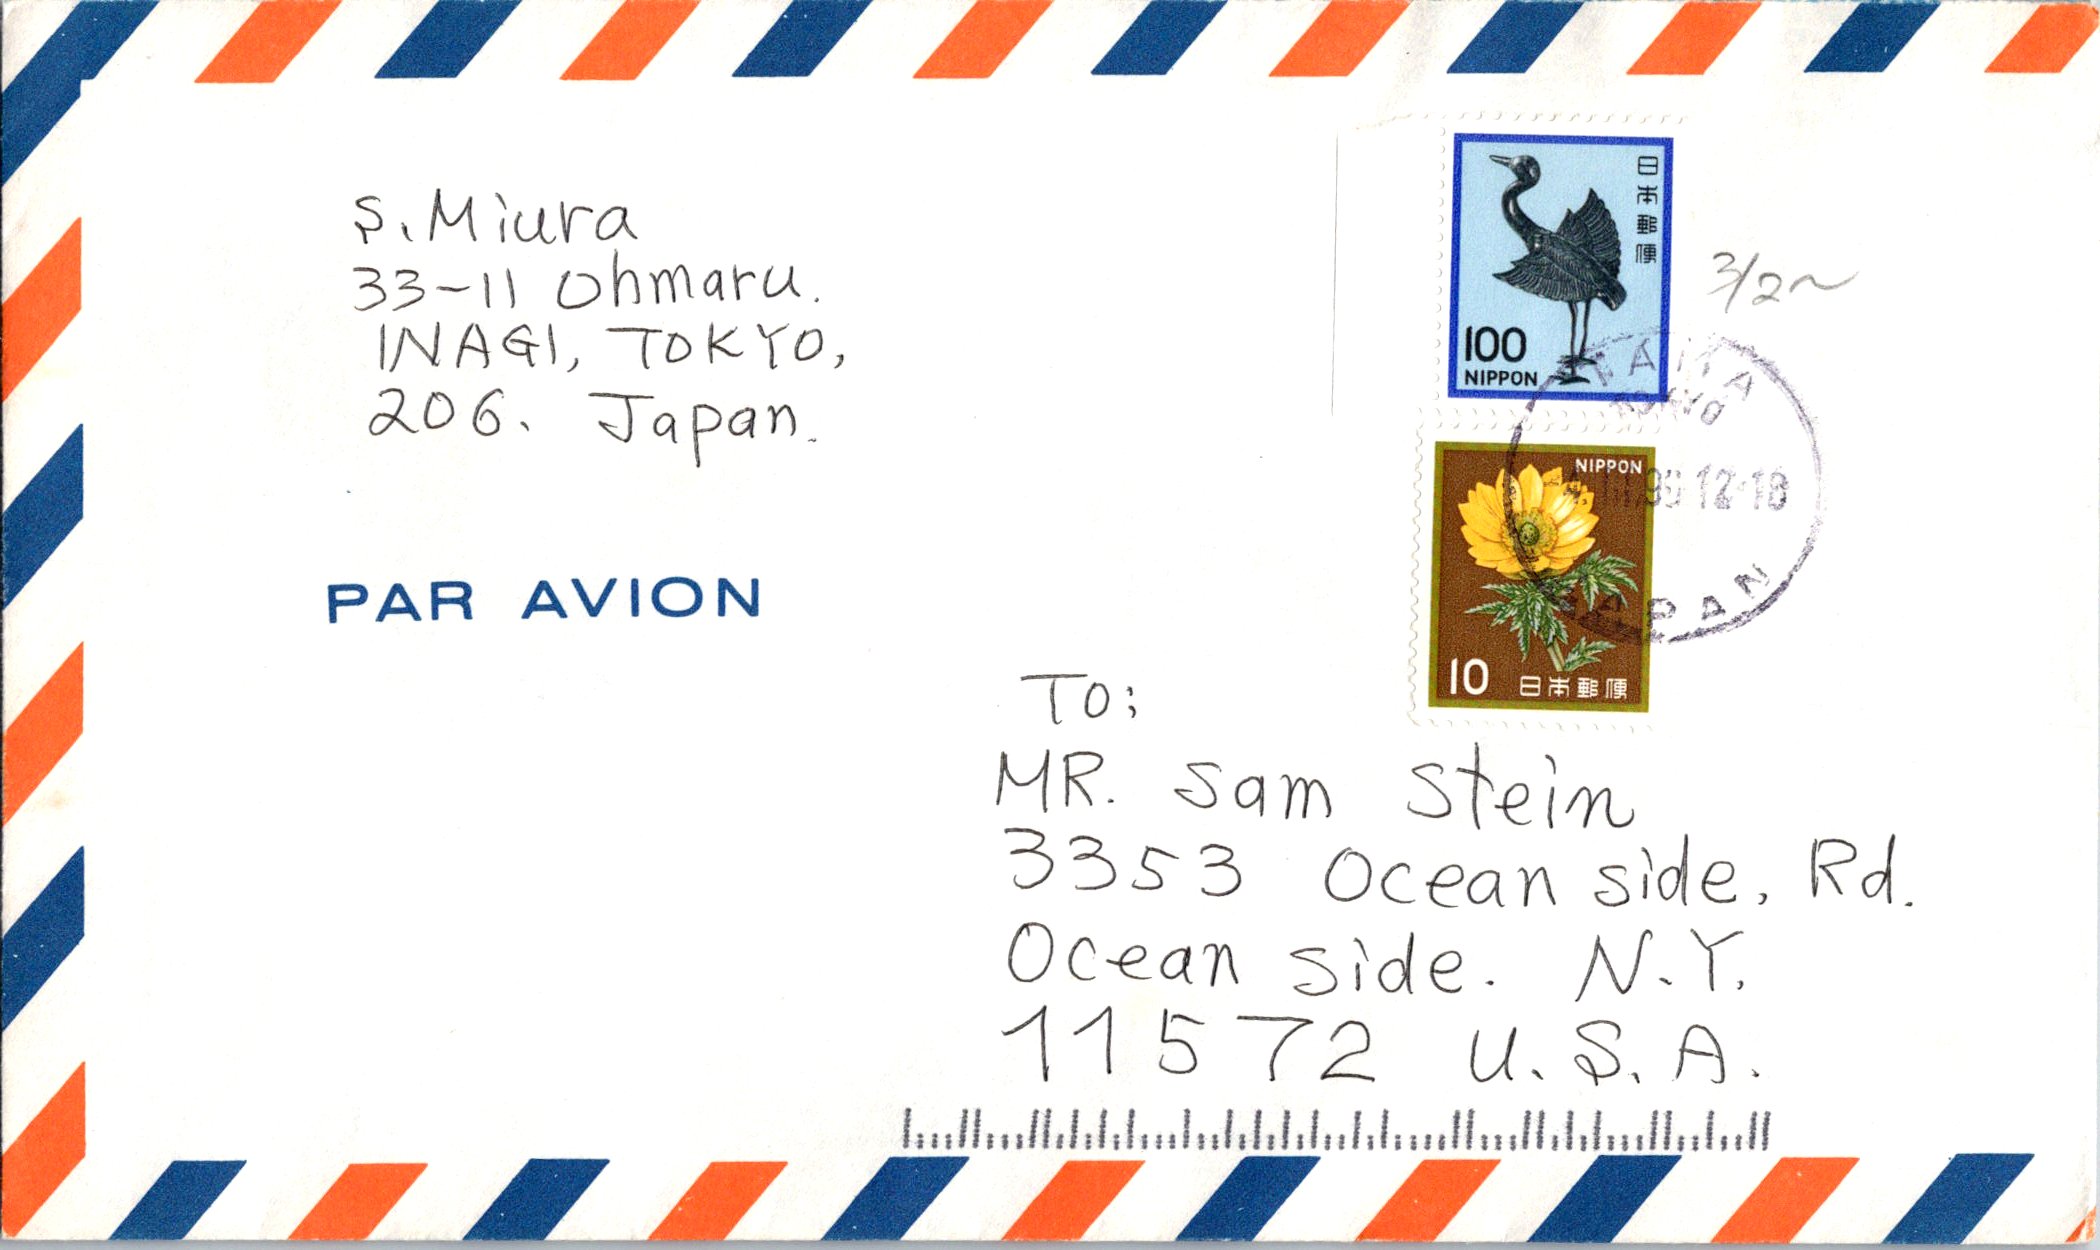 S. Miura
33-11 Ohmaru.
INAGI, TOKYO,
206. Japan.
PAR AVION
日本郵便
100
NIPPON
3/2
TOKYO
12-18
JAPAN
NIPPON
10 日本郵便
To:
MR. Sam Stein
3353 Ocean side, Rd.
Ocean side. N.Y.
11572 U.S.A.